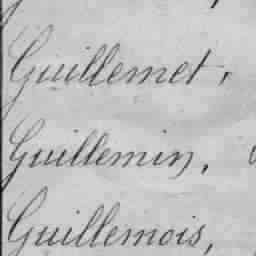 Guillemet,
Guillemin,
Guillemois,